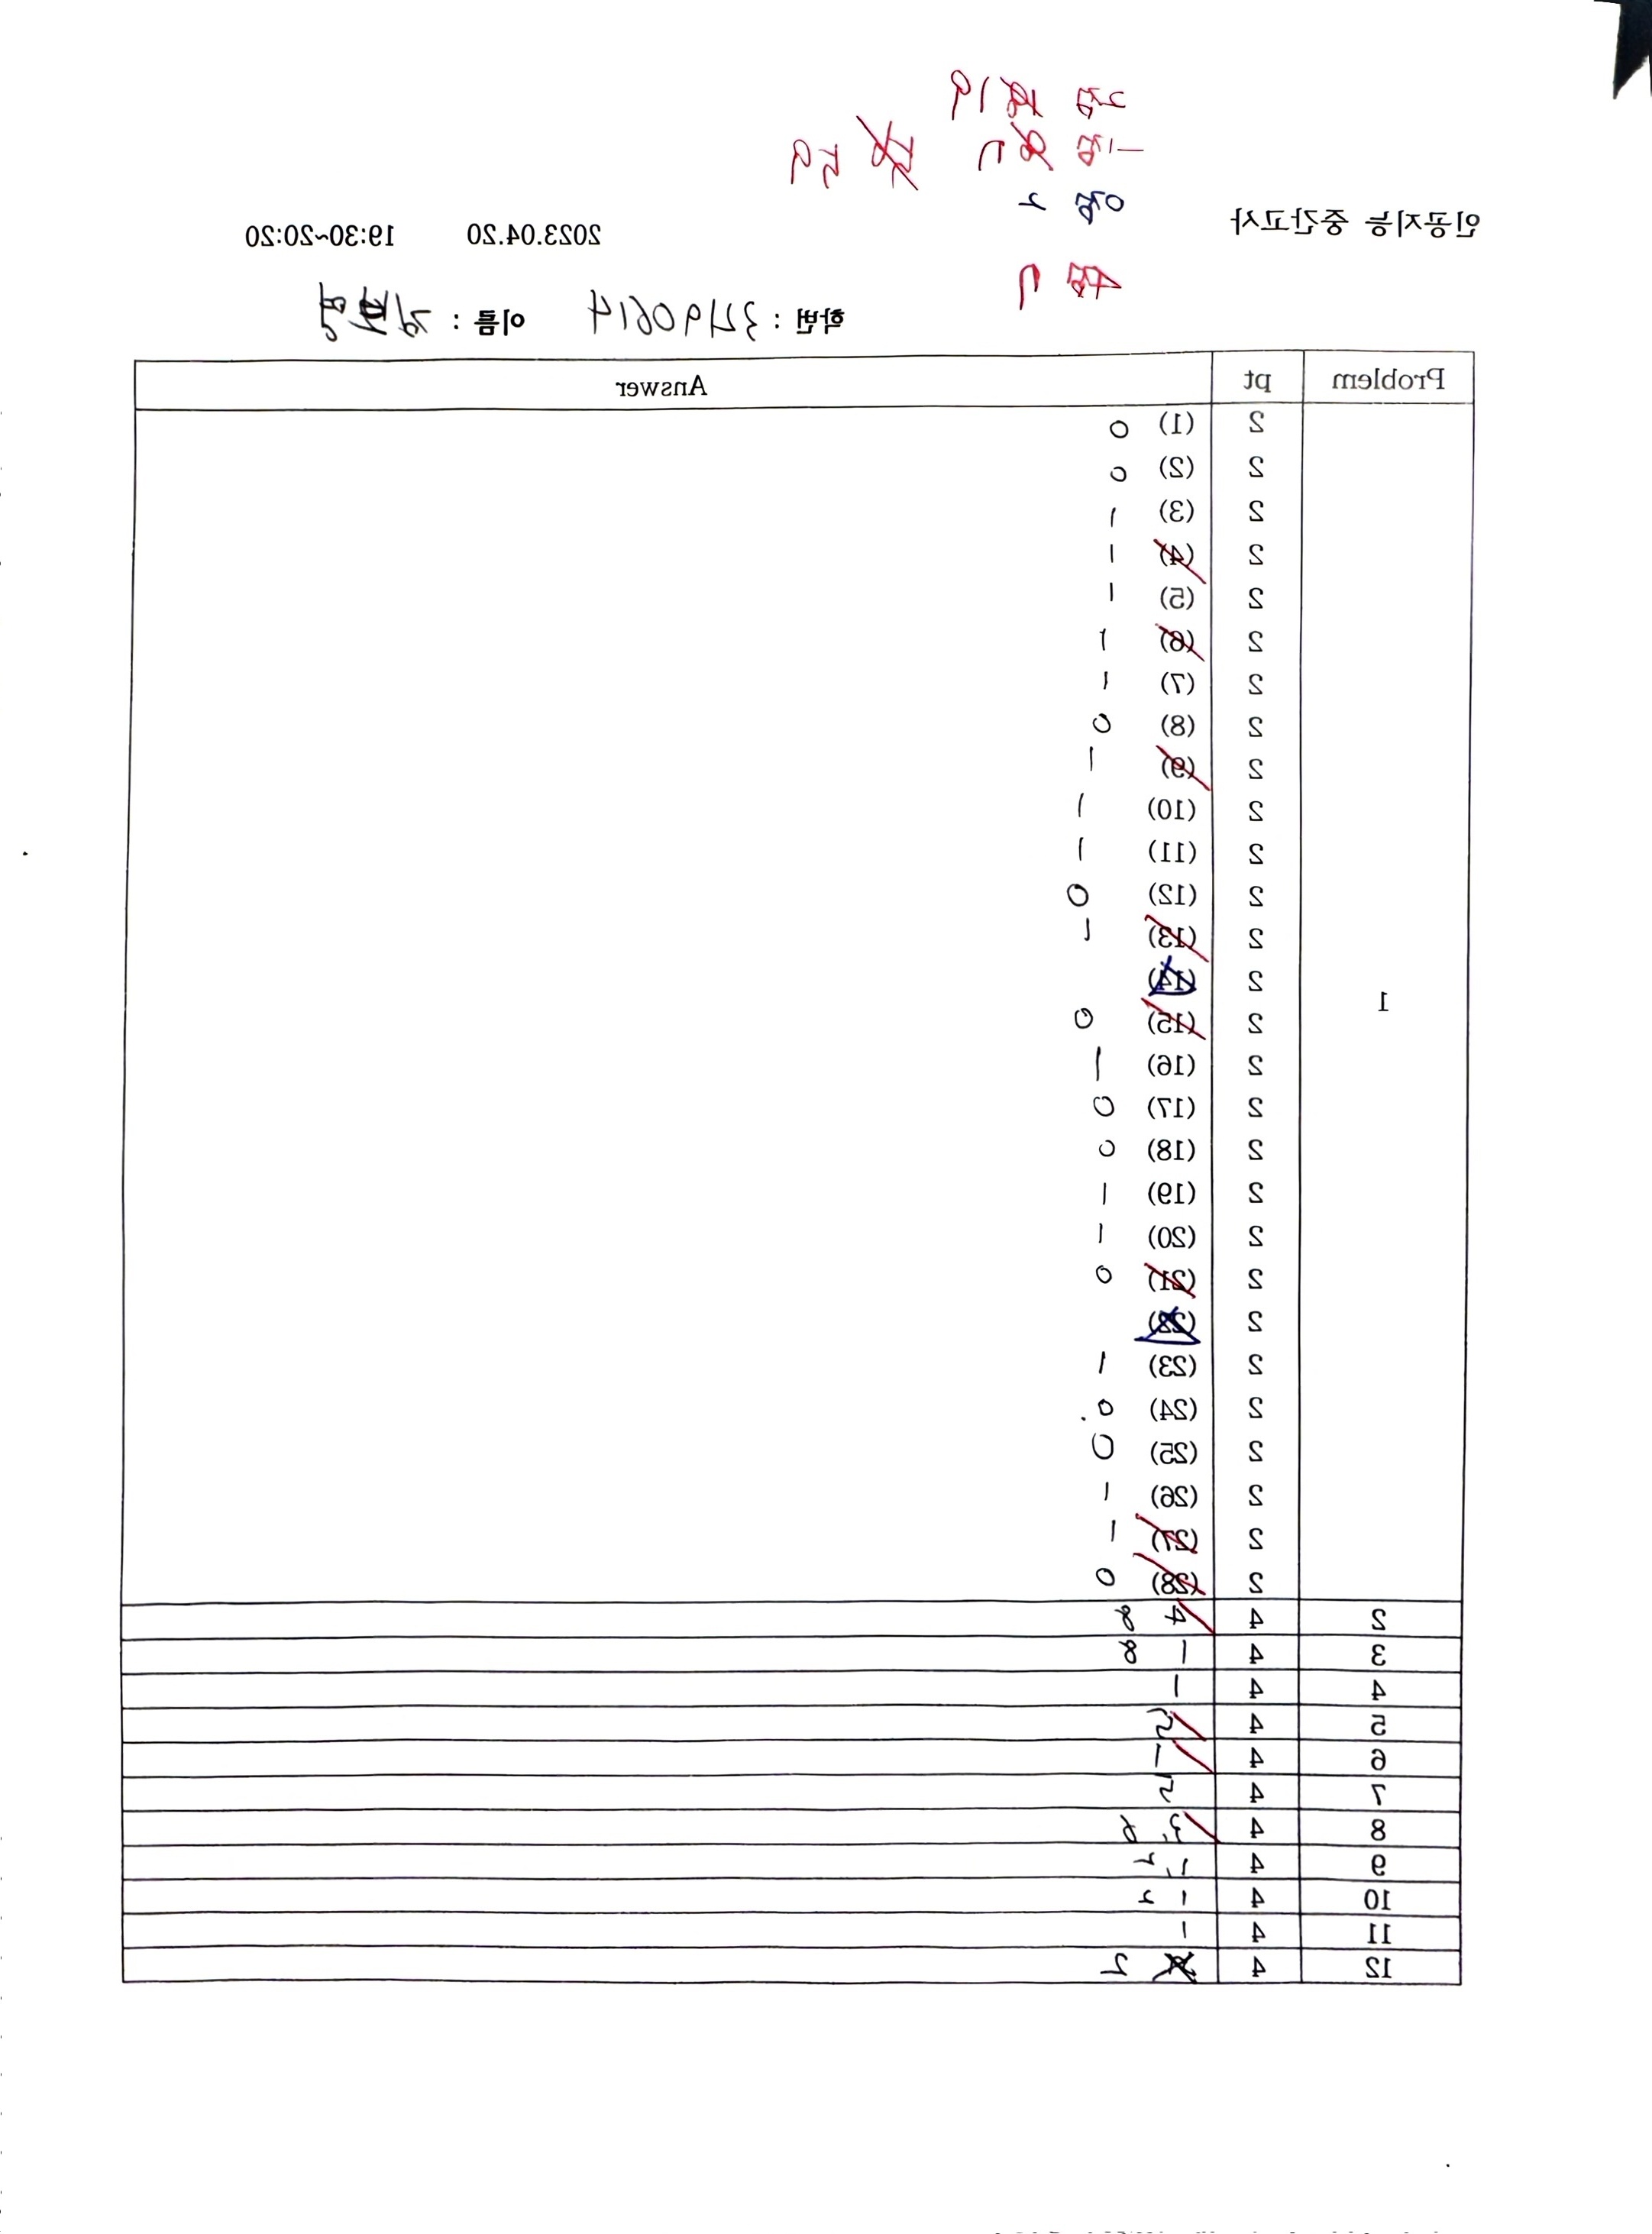 0점 2
인공지능 중간고사 2023.04.20 19:30~20:20
학번 : 32190614 이름 :
Problem pt Answer
1
2 (1) 0
2 (2) 0
2 (3) 1
2 (4) 1
2 (5) 1
2 (6) 1
2 (7) 1
2 (8) 0
2 (9) 1
2 (10) 1
2 (11) 1
2 (12) 0
2 (13) 1
2 (14)
2 (15) 0
2 (16) 1
2 (17) 0
2 (18) 0
2 (19) 1
2 (20) 1
2 (21) 0
2 (22)
2 (23) 1
2 (24) 0
2 (25) 0
2 (26) 1
2 (27) 1
2 (28) 0
2 4 4 8
3 4 1 8
4 4 1
5 4 2
6 4 1
7 4 2
8 4 3, 6
9 4 1, 2
10 4 1 2
11 4 1
12 4 2